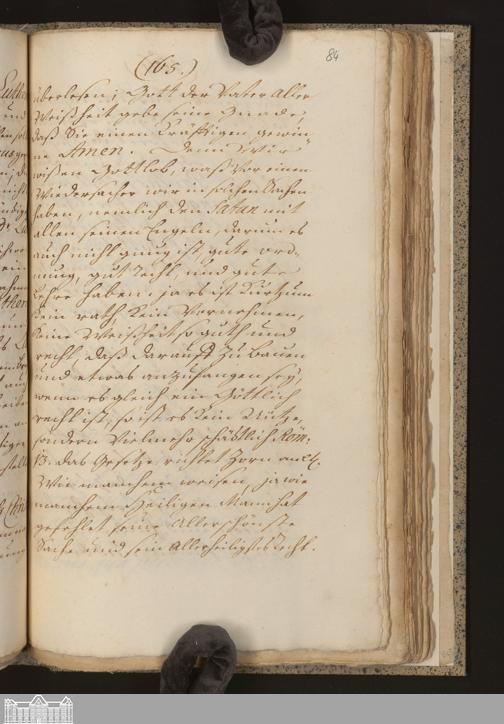 84
(165.)
überlesen; Gott der Vater aller
Weißheit gebe seine Gnade,
daß Sie einen kräfftigen gewin-
ne Amen. Denn Wir
wißen Gottlob, waß vor einen
Wiedersacher wir in solchen Sachen
haben, nemlich den Satan mit
allen seinen Engeln, darum es
auch nicht gnug ist, gute ord-
nung, gut Recht, und gute
Lehre haben, ja es ist kurtzum
kein rath kein Vornehmen,
keine Weißheit so guth und
recht, daß darauff zu bauen
und etwas anzufangen sey,
wenn es gleich ein Göttlich
recht ist, so ist es kein Nütze,
sondern Vielmehr schädtlich Röm:
das Gesetze richtet Zorn an
Wie manchem weisen, ja wie
manchem Heiligen Mann hat
gefehlet seine Allerschönste
Sache und sein Allerheiligstes Recht.